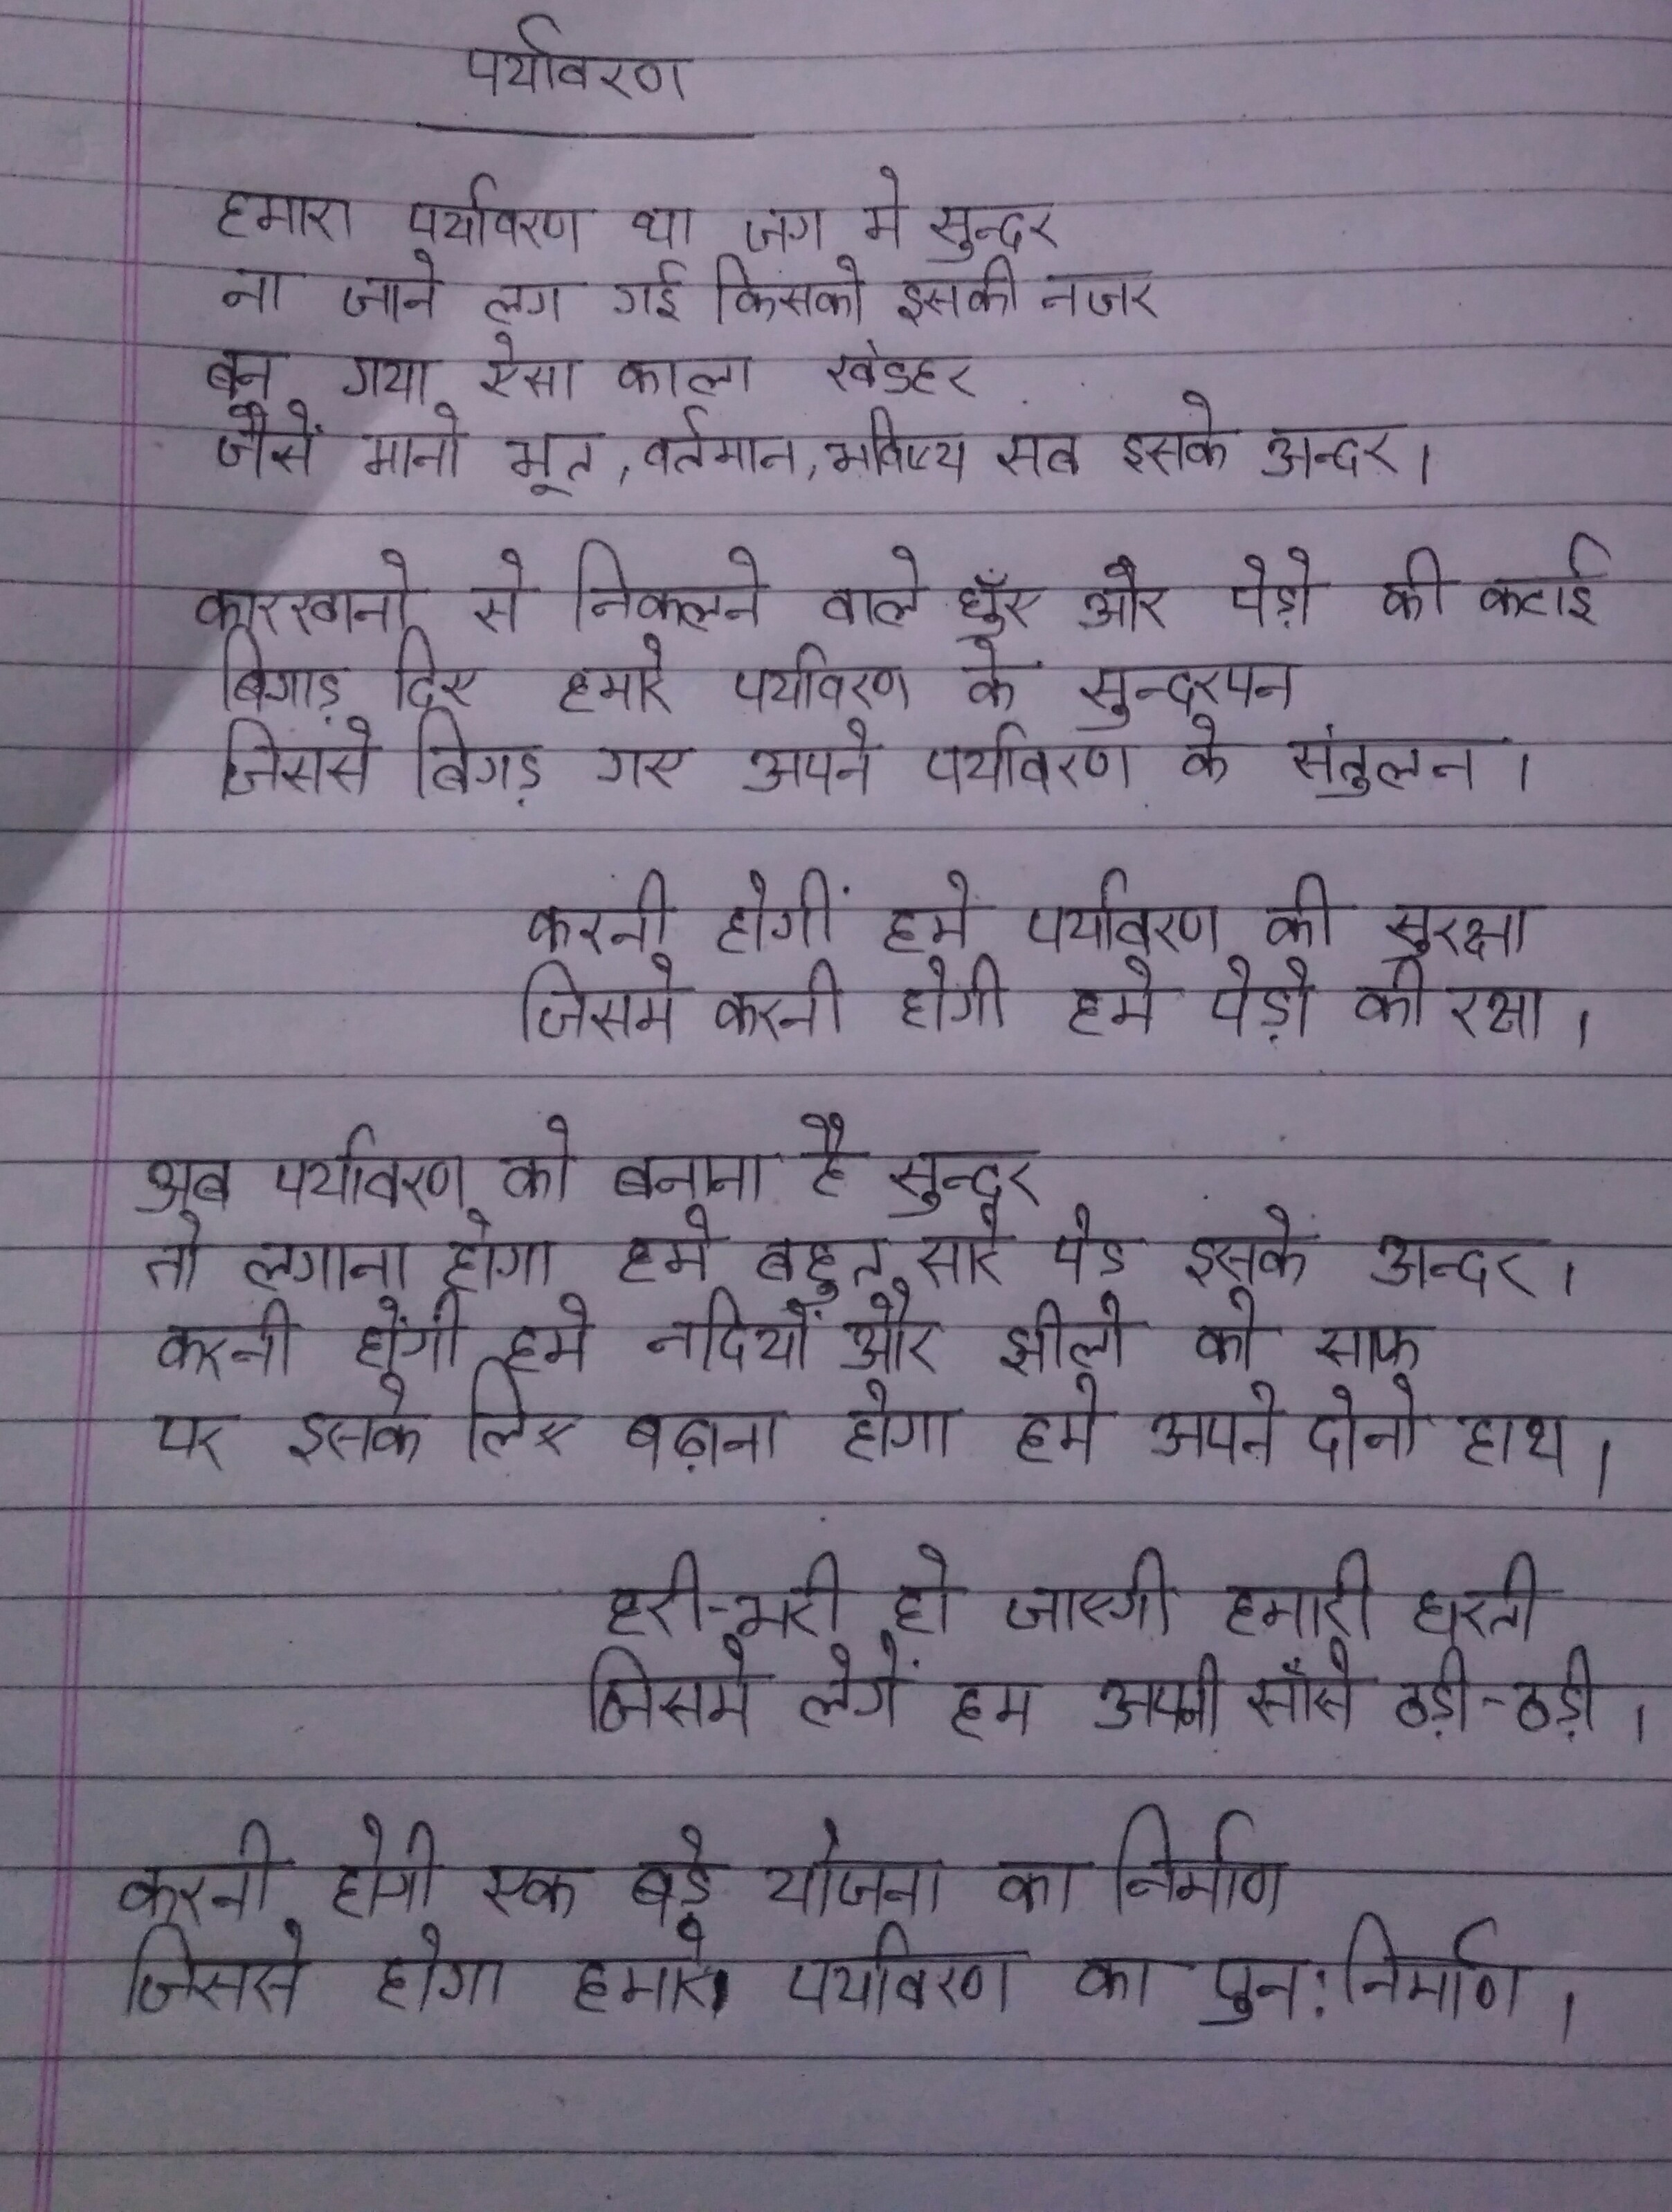 पर्यावरण
हमारा पर्यावरण था जग मे सुन्दर
ना जाने लग गई किसको इसकी नजर
बन गया ऐसा काला खंडहर
जैसें मानो भूत, वर्तमान, भविष्य सब इसके अन्दर।
कारखानो से निकलने वाले धुँए और पेड़ो की कटाई
बिगाड़ दिए हमारे पर्यावरण के सुन्दरपन
जिससे बिगड़ गए अपने पर्यावरण के संतुलन।
करनी होगीं हमे पर्यावरण की सुरक्षा
जिसमे करनी होगी हमे पेड़ो की रक्षा।
अब पर्यावरण को बनाना है सुन्दर
तो लगाना होगा हमे बहुत सारे पेड इसके अन्दर।
करनी होंगी हमे नदियों और झीलो को साफ
पर इसके लिए बढ़ाना होगा हमे अपने दोनो हाथ।
हरी-भरी हो जाएगी हमारी धरती
जिसमे लेगें हम अपनी साँसे ठड़ी-ठड़ी।
करनी होगी एक बड़े योजना का निर्माण
जिससे होगा हमारे पर्यावरण का पुन:निर्माण।